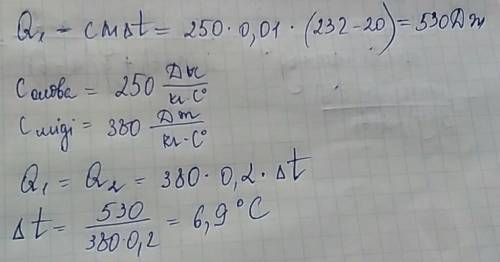 Q₁ - cmΔt = 250·0,01·(232-20) = 530Дж
Cолова = 250 Дж/кг·C°
Cміді = 380 Дж/кг·C°
Q₁ = Q₂ = 380·0,2·Δt
Δt = 530/380·0,2 = 6,9°C